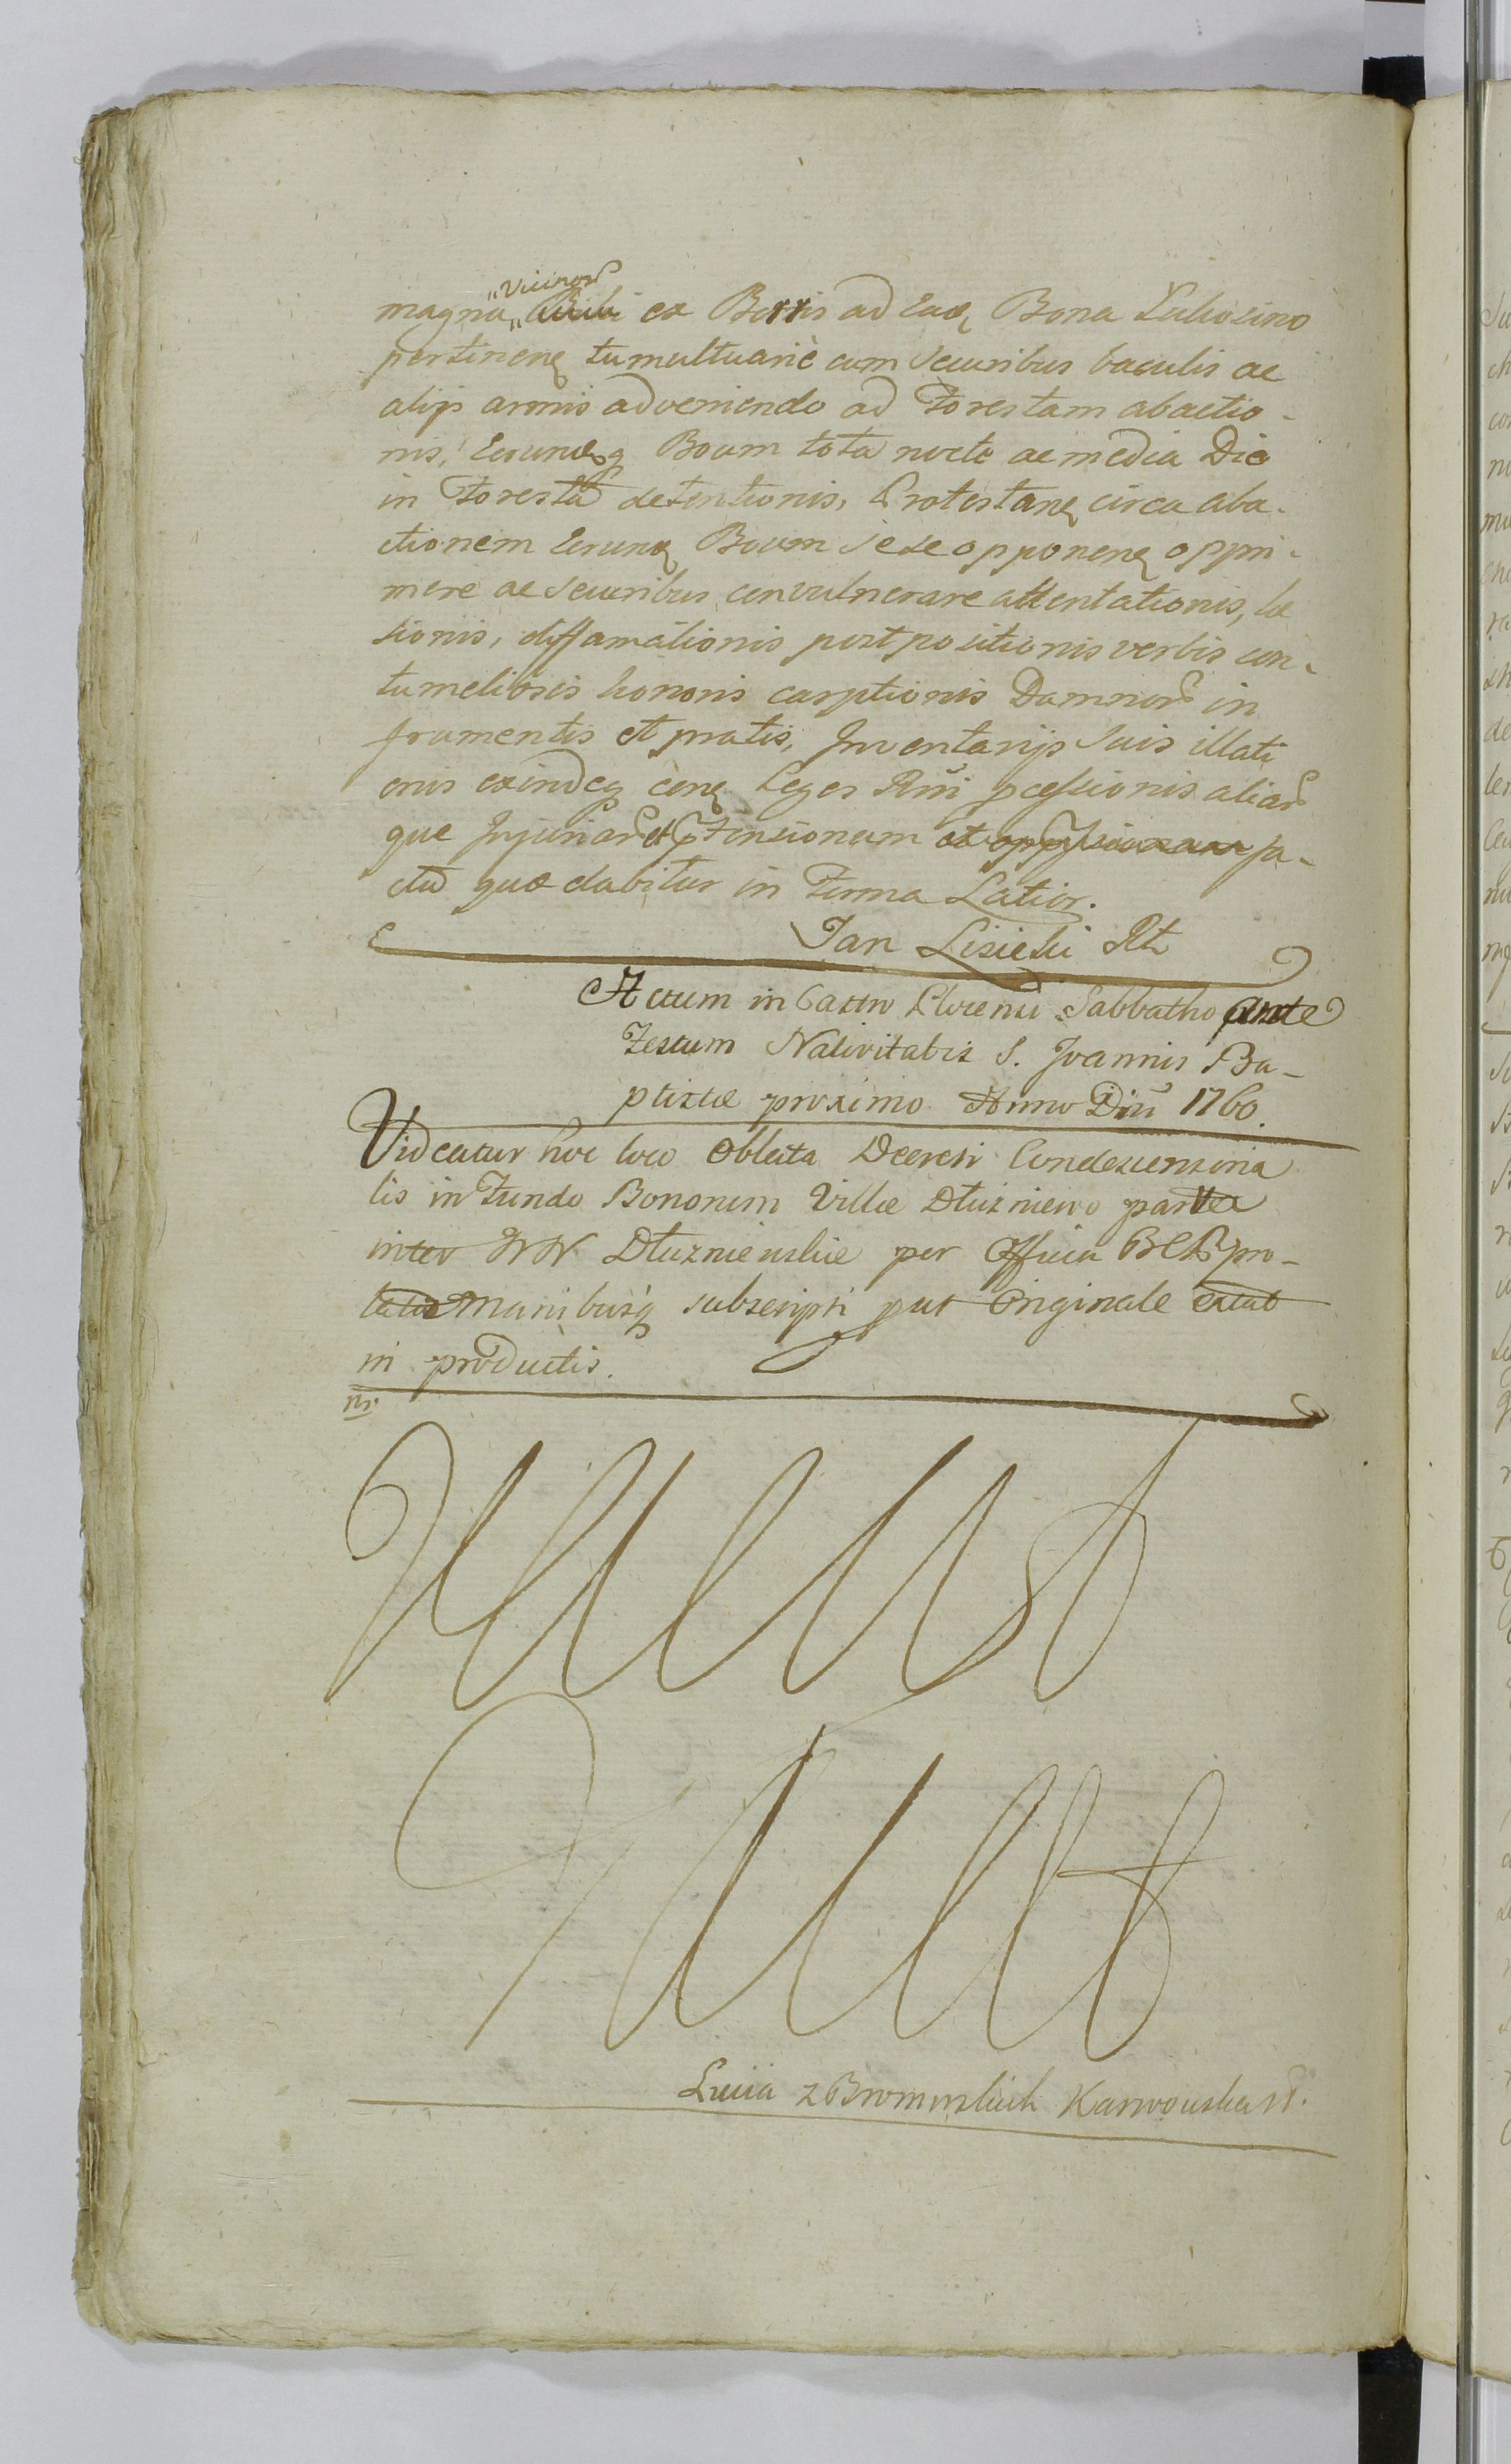 "Viinor
magna" ex Borris ad Eaq Bona
pertineng tumultuariè cum Securibus baculis ac
alijs armis adveniendo ad Forestam abactio-
nis, Boum tota nocte ac media Die
in Foresta detentionis, Protestang circa aba-
ctionem Eorunq Boum sese opponeng oppri-
mere ac Securibus convulnerare attentationis, læ
sionis, diffamationis postpositionis verbis con-
tumeliosis honoris carptionis Damnor in
frumentis et pratis, Inventarijs Suis illati
onis exindeq cong Leges Rni pcessionis aliar
que Injuriar et ptensionum fa-
ctu quæ dabitur in Forma Latior.
Jan Lisiecki Rt
Actum in Castro Plocensi Sabbatho ante
Festum Nativitatis S. Joannis Ba-
ptistæ proximo Anno Dni 1760.
Videatur hoc loco Oblata Decreti Condescensoria
lis in Fundo Bonorum Villæ Dłuzniewo partea
inter WW Dłuzniewskie per Officia pro-
latæ Manibusq subscripti put Originale extat
in productis.
nr.
Karwowska